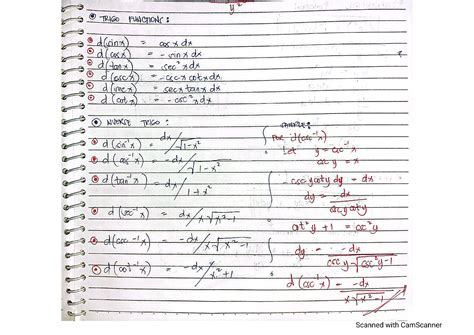 TRIGO FUNCTIONS:
d(sin x) = cos x dx
d(cos x) = -sin x dx
d(tan x) = sec² x dx
d(csc x) = -csc x cot x dx
d(sec x) = sec x tan x dx
d(cot x) = -csc² x dx
INVERSE TRIGO:
d(sin⁻¹x) = dx/√1-x²
d(cos⁻¹x) = -dx/√1-x²
d(tan⁻¹x) = dx/1+x²
d(sec⁻¹x) = dx/x√x²-1
d(csc⁻¹x) = -dx/x√x²-1
d(cot⁻¹x) = -dx/x²+1
EXAMPLE:
For d(csc⁻¹x)
Let y = csc⁻¹x
csc y = x
-csc y cot y dy = dx
dy = -dx/csc y cot y
cot² y + 1 = csc² y
dy = -dx/csc y √csc² y -1
d(csc⁻¹x) = -dx/x√x²-1
Scanned with CamScanner